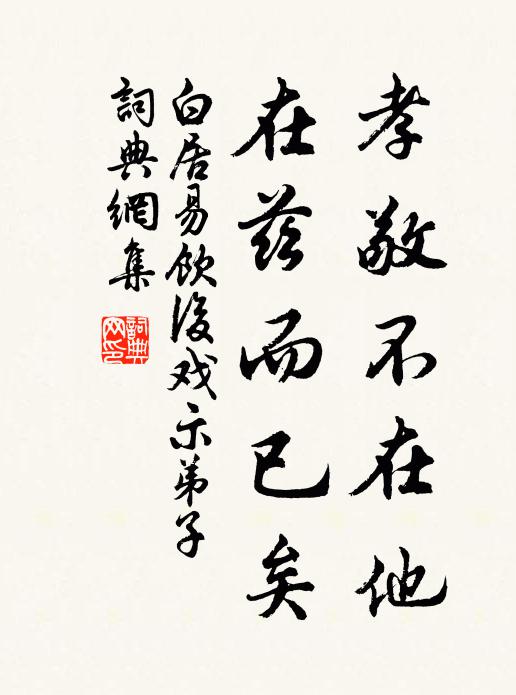 孝敬不在他
在茲而已矣
白居易飲後戏示弟子
詞典網集
詞典网印